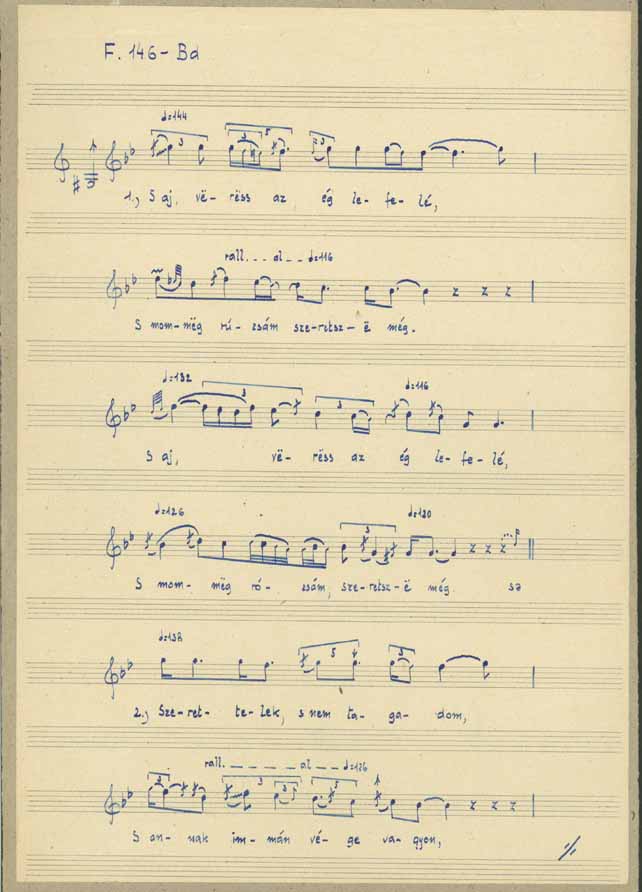 F. 146 - Bd
♩=144
1., S aj, vë-rëss az ég le-fe-lé,
rall. _ _ _ al _ _ ♩=116
S mom-mëg rú-zsám sze-retsz-ë még.
♩=132 ♩=116
S aj, vë-rëss az ég le-fe-lé,
♩=126 ♩=120
S mom-mëg ró-zsám, sze-retsz-ë még sə
♩=138
2., Sze-ret-te-lek, s nem ta-ga-dom,
rall. _ _ _ _ _ al _ _ ♩=126
S an-nak im-mán vé-ge va-gyon,